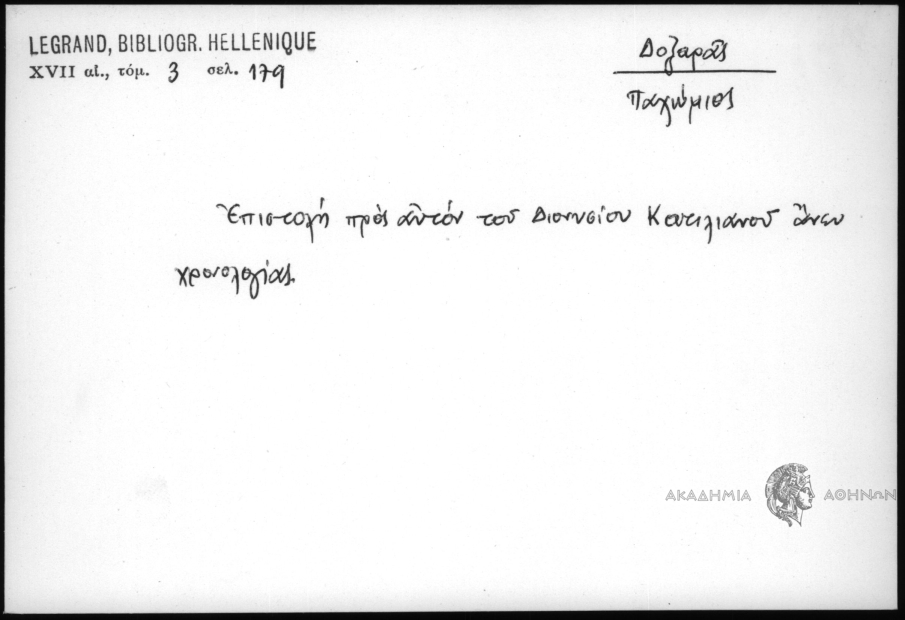 LEGRAND, BIBLIOGR. HELLENIQUE
XVII αἰ., τόμ. 3 σελ. 179
Δοξαρᾶς
Παχώμιος
Ἐπιστολή πρός αὐτόν τοῦ Διονυσίου Κατιλιανοῦ ἄνευ
χρονολογίας.
ΑΚΑΔΗΜΙΑ ΑΘΗΝΩΝ